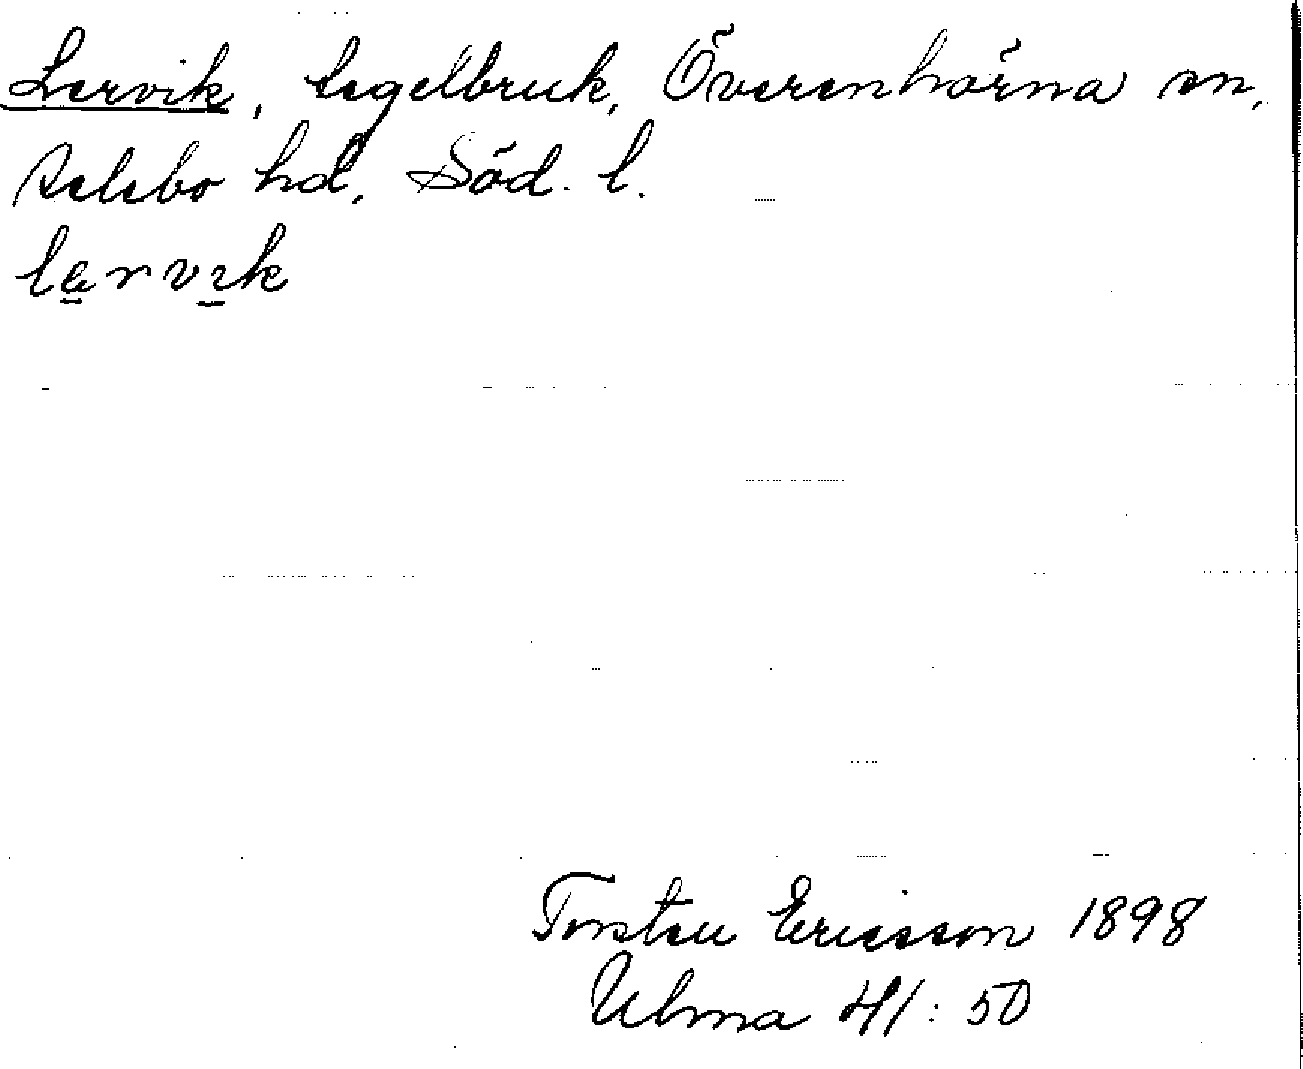 Lervik, tegelbruk, Överenhörna sn,
Selebo hd, Söd. l.
lervik
Torsten Ericsson 1898
Ulma 41:50